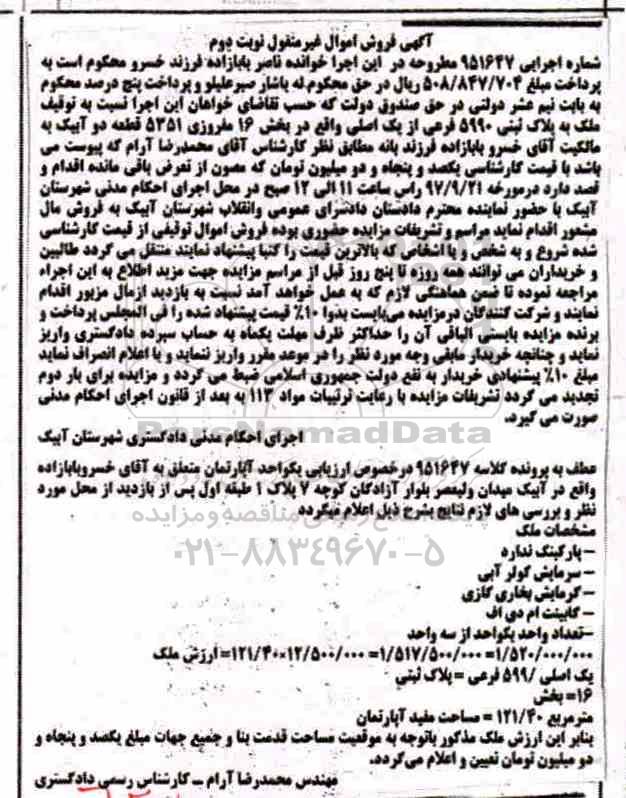 آگهی فروش اموال غیرمنقول نوبت دوم
شماره اجرایی ۹۵۱۶۴۷ مطروحه در این اجرا خوانده ناصر بابازاده فرزند خسرو محکوم است به
پرداخت مبلغ ۵۰۸/۸۴۷/۷۰۴ ریال در حق محکوم له یاشار صبرعلیلو و پرداخت پنج درصد محکوم
به بابت نیم عشر دولتی در حق صندوق دولت که حسب تقاضای خواهان این اجرا نسبت به توقیف
ملک به پلاک ثبتی ۵۹۹۰ فرعی از یک اصلی واقع در بخش ۱۶ مفروزی ۵۳۵۱ قطعه دو آبیک به
مالکیت آقای خسرو بابازاده فرزند بانه مطابق نظر کارشناس آقای محمدرضا آرام که پیوست می
باشد با قیمت کارشناسی یکصد و پنجاه و دو میلیون تومان که مصون از تعرض باقی مانده اقدام و
قصد دارد درمورخه ۹۷/۹/۲۱ راس ساعت ۱۱ الی ۱۲ صبح در محل اجرای احکام مدنی شهرستان
آبیک با حضور نماینده محترم دادستان دادسرای عمومی وانقلاب شهرستان آبیک به فروش مال
مشعور اقدام نماید مراسم و تشریفات مزایده حضوری بوده فروش اموال توقیفی از قیمت کارشناسی
شده شروع و به شخص و یا اشخاص که بالاترین قیمت را کتبا پیشنهاد نمایند منتقل می گردد طالبین
و خریداران می توانند همه روزه تا پنج روز قبل از مراسم مزایده جهت مزید اطلاع به این اجراء
مراجعه نموده تا ضمن هماهنگی لازم که به عمل خواهد آمد نسبت به بازدید ازمال مزبور اقدام
نمایند و شرکت کنندگان درمزایده می‌بایست بدوا ۱۰٪ قیمت پیشنهاد شده را فی المجلس پرداخت و
برنده مزایده بایستی الباقی آن را حداکثر ظرف مهلت یکماه به حساب سپرده دادگستری واریز
نماید و چنانچه خریدار مابقی وجه مورد نظر را در موعد مقرر واریز ننماید و یا اعلام انصراف نماید
مبلغ ۱۰٪ پیشنهادی خریدار به نفع دولت جمهوری اسلامی ضبط می گردد و مزایده برای بار دوم
تجدید می گردد تشریفات مزایده با رعایت ترتیبات مواد ۱۱۳ به بعد از قانون اجرای احکام مدنی
صورت می گیرد.
اجرای احکام مدنی دادگستری شهرستان آبیک
ParsNamadData
عطف به پرونده کلاسه ۹۵۱۶۴۷ درخصوص ارزیابی یکواحد آپارتمان متعلق به آقای خسروبابازاده
واقع در آبیک میدان ولیعصر بلوار آزادگان کوچه ۷ پلاک ۱ طبقه اول پس از بازدید از محل مورد
نظر و بررسی های لازم نتایج بشرح ذیل اعلام میگردد
مشخصات ملک
۰۲۱-۸۸۳۴۹۶۷۰-۵
– پارکینگ ندارد
– سرمایش کولر آبی
– گرمایش بخاری گازی
– کابینت ام دی اف
–تعداد واحد یکواحد از سه واحد
۱/۵۲۰/۰۰۰/۰۰۰ =۱/۵۱۷/۵۰۰/۰۰۰ =۱۲۱/۴۰×۱۲/۵۰۰/۰۰۰= ارزش ملک
یک اصلی /۵۹۹ فرعی = پلاک ثبتی
۱۶= بخش
مترمربع ۱۲۱/۴۰ = مساحت مفید آپارتمان
بنابر این ارزش ملک مذکور باتوجه به موقعیت مساحت قدمت بنا و جمیع جهات مبلغ یکصد و پنجاه و
دو میلیون تومان تعیین و اعلام می‌گردد.
مهندس محمدرضا آرام – کارشناس رسمی دادگستری